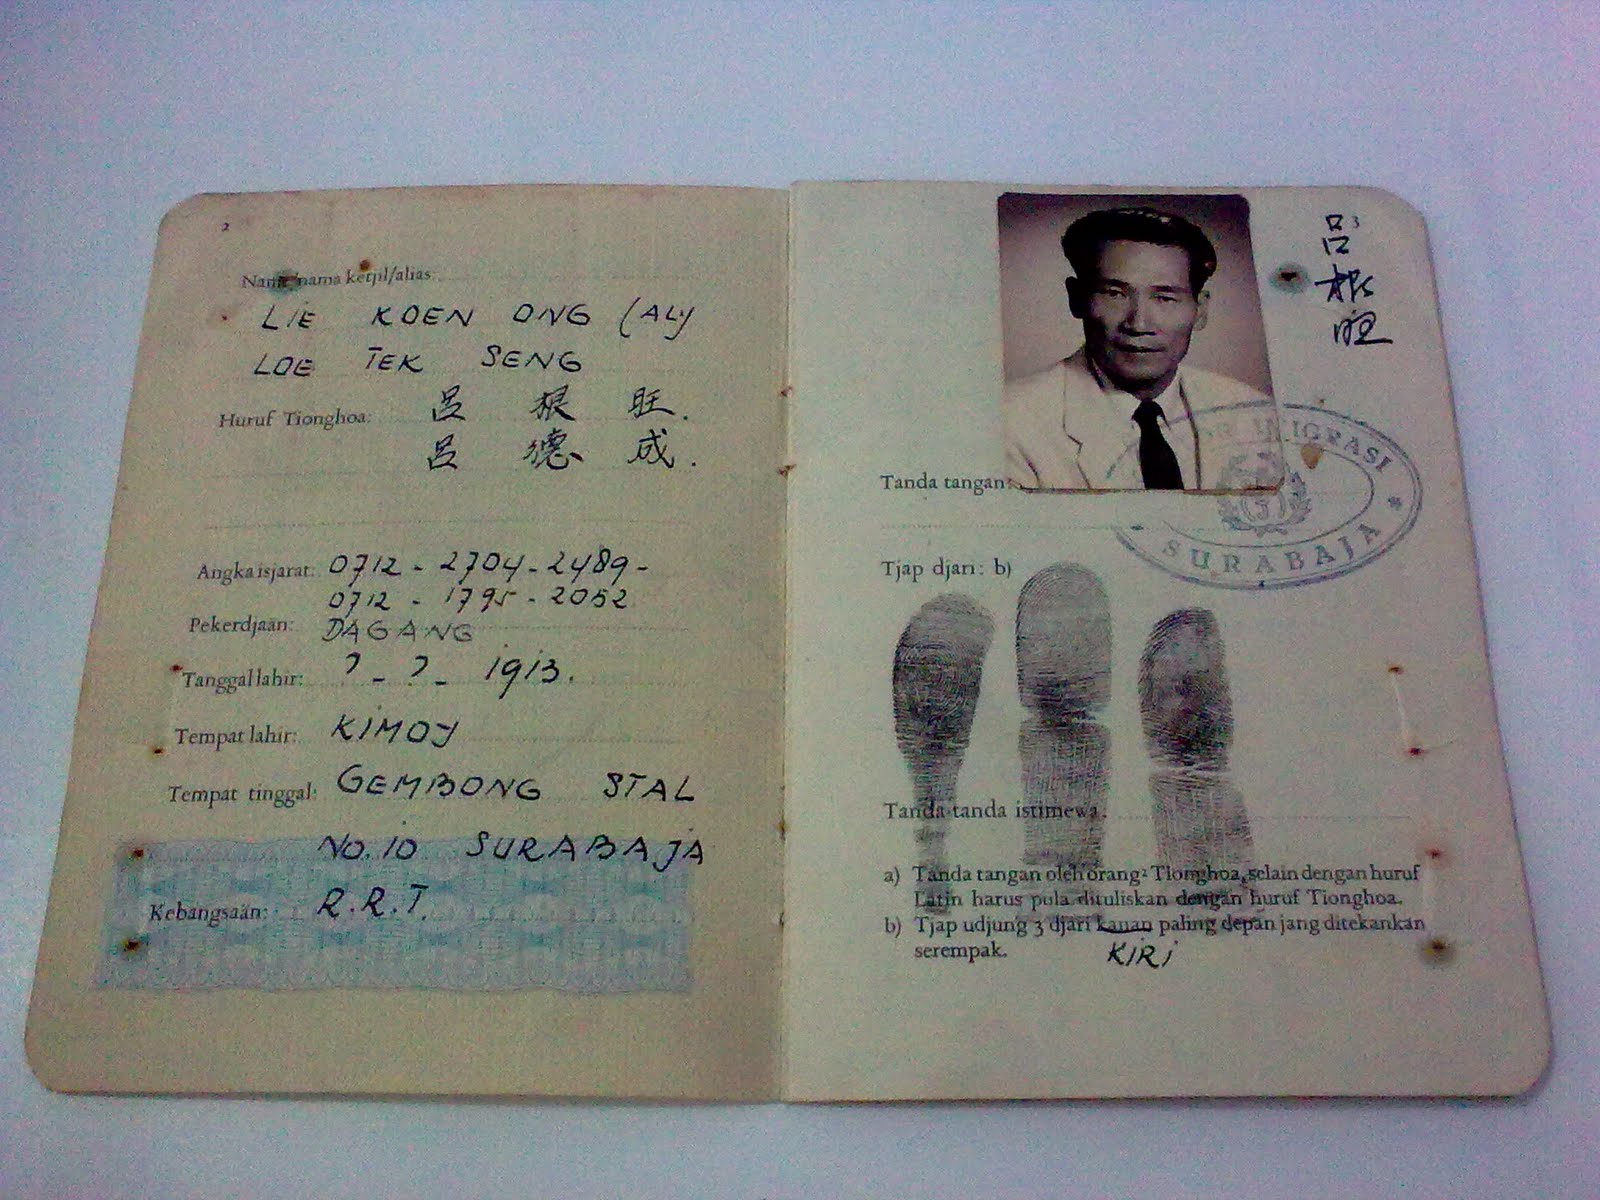 2
Nama/nama ketjil/alias:
LIE KOEN ONG (AL)
LOE TEK SENG
呂 根 旺.
Huruf Tionghoa:
呂 德 成.
Angka isjarat: 0712 - 2704 - 2489 -
0712 - 1795 - 2052
Pekerdjaän: DAGANG
Tanggal lahir: ? - ? - 1913.
Tempat lahir: KIMOY
Tempat tinggal: GEMBONG STAL
No. 10 SURABAJA
Kebangsaän: R.R.T.
3
呂
根
旺
Tanda tangan:
IMIGRASI
SURABAJA
Tjap djari: b)
Tanda-tanda istimewa:
a) Tanda tangan oleh orang² Tionghoa, selain dengan huruf
Latin harus pula dituliskan dengan huruf Tionghoa.
b) Tjap udjung 3 djari kanan paling depan jang ditekankan
serempak. KIRI